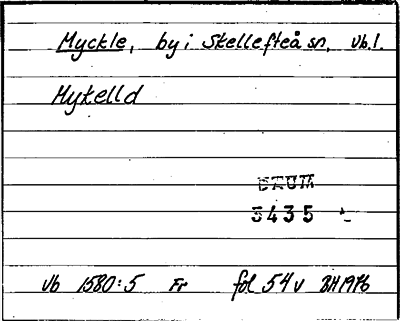 Myckle, by i Skellefteå sn, Vb.l.
Mykelld
DAUM
5435
Vb 1580:5 Fr fol 54 v BH 1976